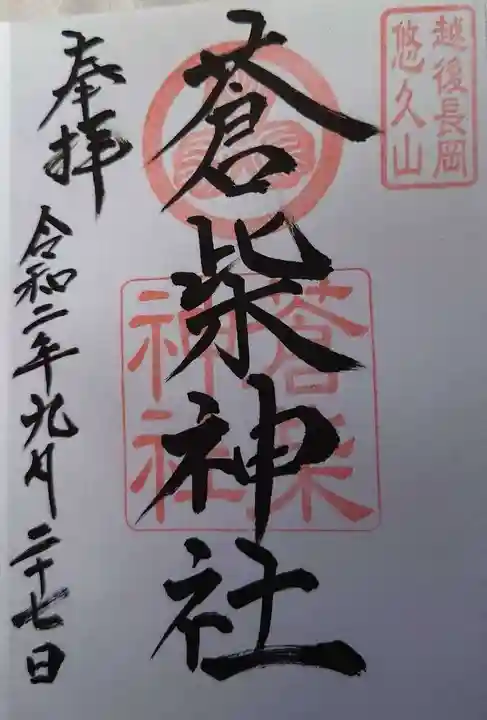 越後長岡
悠久山
蒼柴神社
蒼柴
神社
奉拝
令和二年九月二十七日